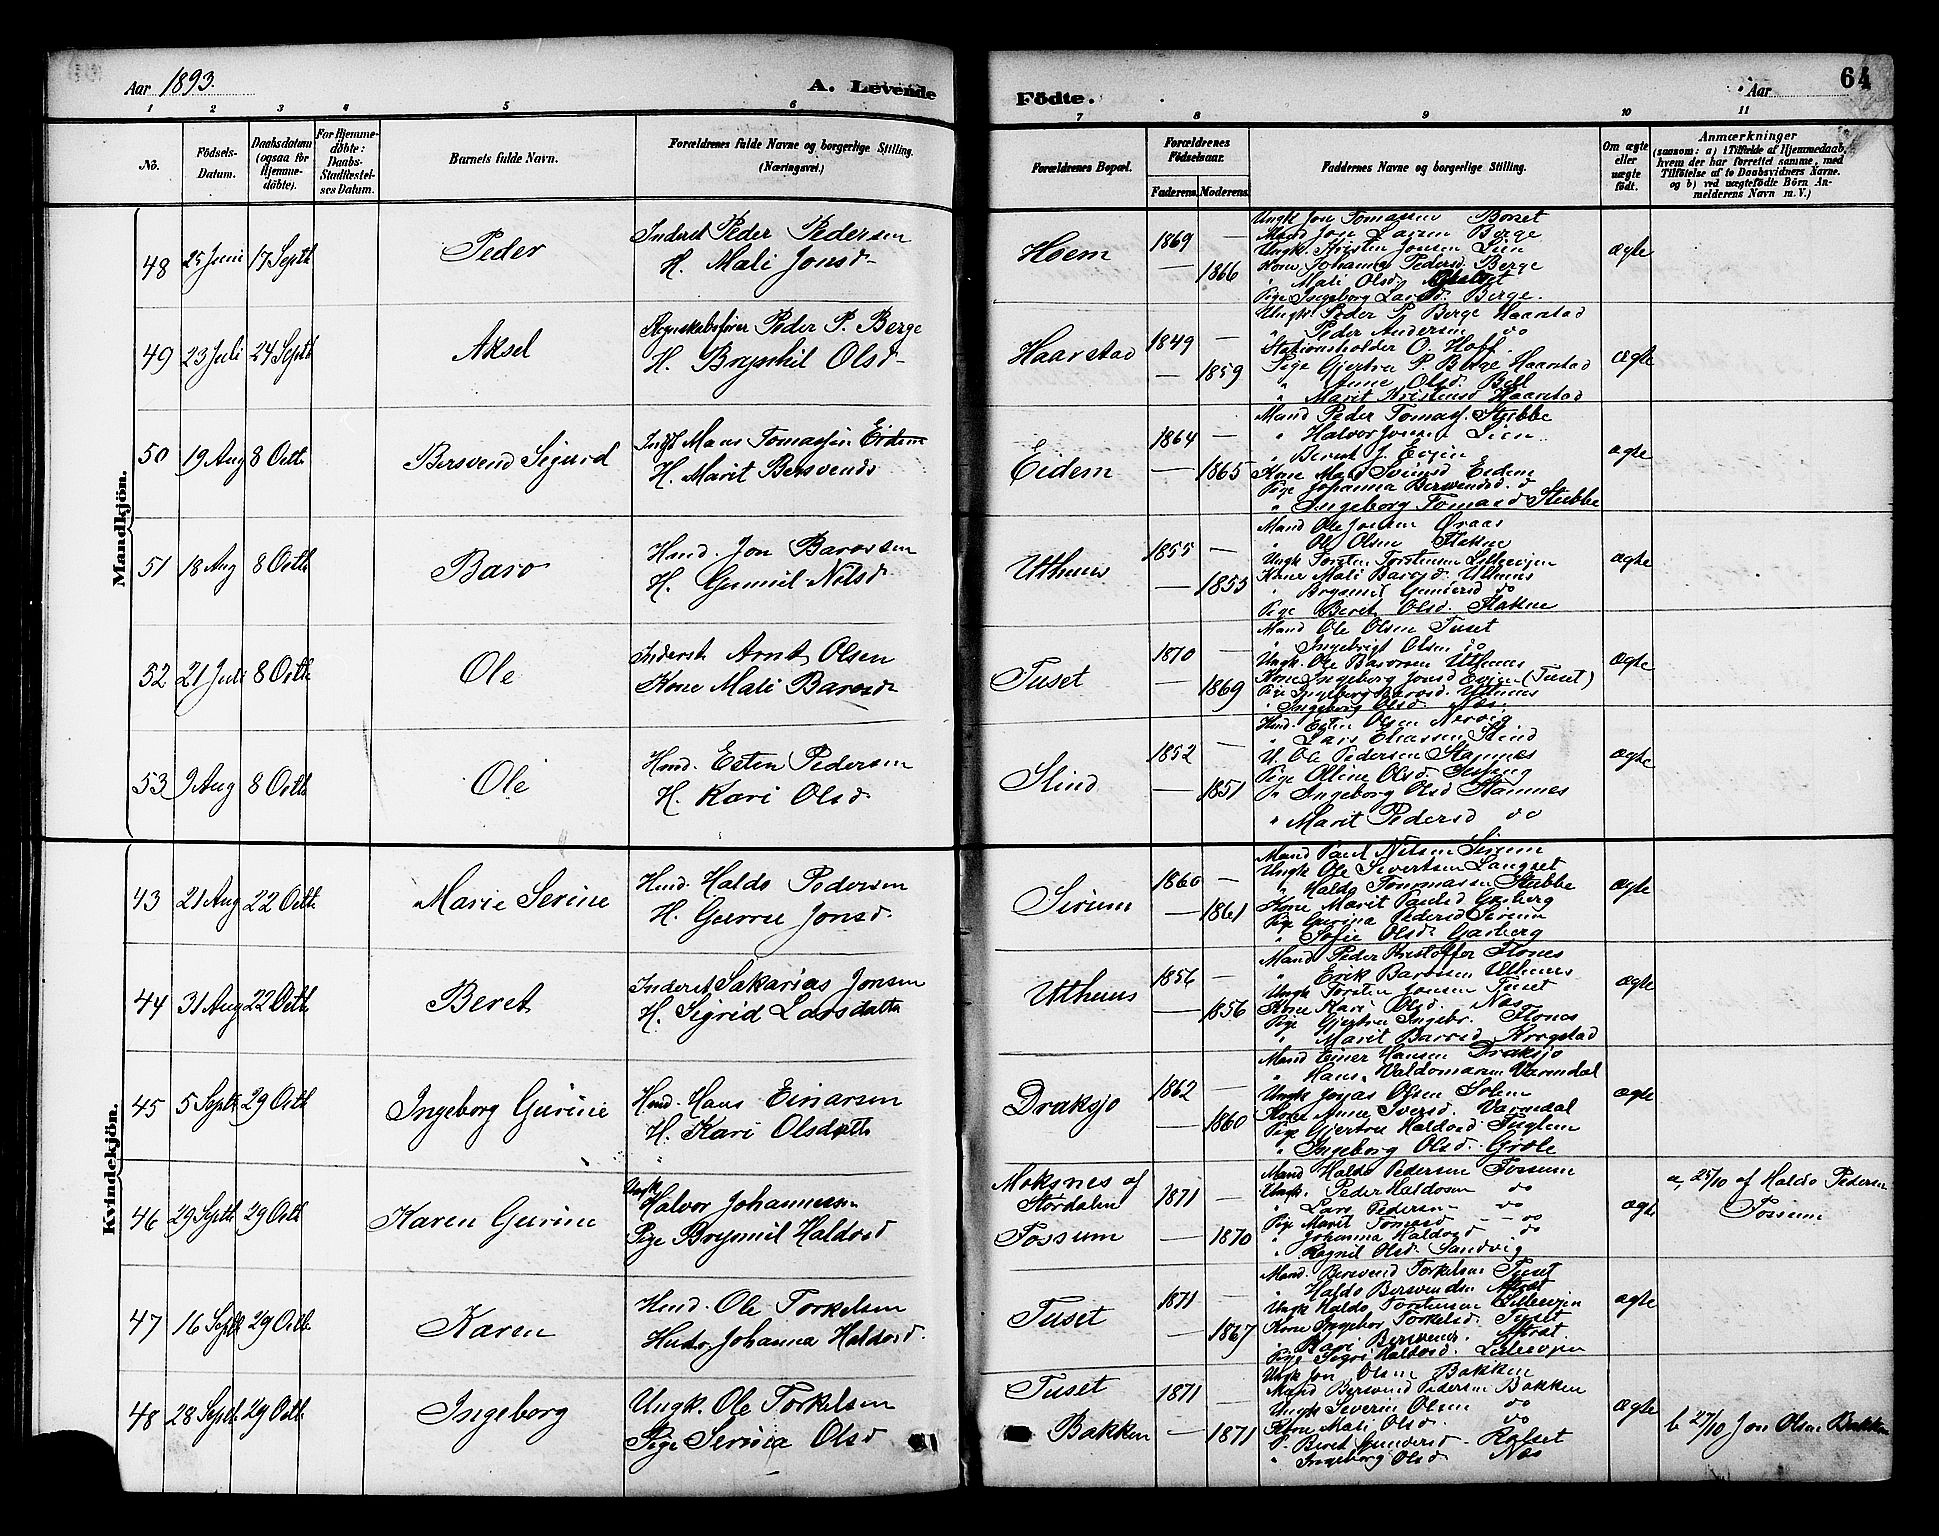 Aar 1893.
A. Levende
Födte.
Aar
64
1 2 3 4 5 6 7 8 9 10 11
No.
Födsels-Datum.
Daabsdatum (ogsaa for Hjemme-döbte).
For Hjemme-döbte: Daabs-Stadfæstel-ses Datum.
Barnets fulde Navn.
Forældrenes fulde Navne og borgerlige Stilling. (Næringsvei.)
Forældrenes Bopæl.
Forældrenes Födselsaar.
Faderens. Moderens.
Faddernes Navne og borgerlige Stilling.
Om ægte eller uægte födt.
Anmærkninger
(saasom: a) i Tilfælde af Hjemmedaab, hvem der har forrettet samme, med Tilföielse af to Daabsvidners Navne. og b) ved uægtefödte Börn An-melderens Navn m. V.)
Mandkjön.
48 25 Juni 17 Septb Peder
Inderst Peder Pedersen
H. Mali Jonsd
Hoem 1869 — 1866
Ungk Jon Tomassen Borset
Mand Jon Larsen Berge
Ungk. Kristen Jonsen Lien
Kone Johanna Pedersd. Berge
" Mali Olsd.
Pige Ingeborg Larsd. Berge.
ægte
49 23 Juli 24 Septb Aksel
Regnskabsfører Peder P. Berge
H. Brynhil Olsd
Haarstad 1849 — 1859
Ungk. Peder P. Berge Haarstad
" Peder Andersen do
Stationsholder O. Hoff
Pige Gjertru P. Berge Haarstad
" Anne Olsd. Bell
" Marit Kristensd Haarstad
ægte
50 19 Aug 8 Octb. Bersvend Sigurd
Indst Mans Tomassen Eidem
H. Marit Bersvends
Eidem 1864 — 1865
Mand Peder Tomass. Stubbe
" Halvor Jonsen Lien
" Bernt J. Evjen
Kone Mali Sveinsd Eidem
Pige Johanna Bersvendsd. d
" Ingeborg Tomasd Stubbe
ægte
51 18 Aug 8 Octb Baro
Hmd. Jon Barosen
H. Gunnil Nilsd
Uthuus 1855 — 1853
Mand Ole Jonsen Øraas
" Ole Olsen Flakne
Ungk Torsten Torstensen Lillevjen
Kone Mali Barosd. Uthuus
" Brynnil Gundersd do
Pige Beret Olsd. Flakne
ægte
52 21 Juli 8 Octb. Ole
Inderst Arnt Olsen
Kone Mali Barosd
Tuset 1870 — 1869
Mand Ole Olsen Tuset
" Ingebrigt Olsen do
Ungk. Ole Barosen Uthuus
Kone Ingeborg Jonsd Evjen (Tuset)
Pige Ingeborg Barosd. Uthuus
" Ingeborg Olsd. Næs.
ægte
53 9 Aug 8 Octb Ole
Hmd. Esten Pedersen
H. Kari Olsd.
Slind 1852 — 1851
Hmd. Esten Olsen Nervig
" Lars Eliassen Slind
U. Ole Pedersen Stamnes
Pige Olline Olsd.
P. Ingeborg Olsd Stamnes
" Marit Pedersd do
ægte
Kvindekjön.
43 21 Aug 22 Octb. Marie Serine
Hmd. Haldo Pedersen
H. Gurru Jonsd.
Sirum 1860 — 1861
Mand Paul Nilsen Sirum
Ungk Ole Sivertsen Langset
" Haldo Tommassen Stubbe
Kone Marit Paulsd Garberg
Pige Gurina Pedersd Sirum
" Sofie Olsd. Garberg
ægte
44 31 Aug 22 Octb. Beret
Inderst Sakarias Jonsen
H. Sigrid Larsdatte
Uthuus 1856 — 1856
Mand Peder Kristoffer Flones
" Erik Barosen Uthuus
Ungk Torsten Jonsen Tuset
Kone Kari Olsd. Næs
Pige Gjertru Ingebr. Flones
" Marit Barosd Krogstad
ægte
45 5 Septb 29 Octb Ingeborg Gurine
Hmd. Hans Einarsen
H. Kari Olsdatte
Draksjo 1862 — 1860
Mand Einer Hansen Draksjo
" Hans Valdomarsen Varmdal
Ungk Jonas Olsen Solem
Kone Anne Iversd. Varmdal
Pige Gjertru Haldosd Fuglem
" Ingeborg Olsd. Grøte
ægte
46 29 Septb 29 Octb Karen Gurine
Ungk Halvor Johannessen
Pige Brynnil Haldosd
Moksnes af Størdalen
Fossum
1871 — 1870
Mand Haldo Pedersen Fossum
Ungk. Peder Haldosen do
" Lars Pedersen do
Pige Marit Tomasd do
" Johanna Haldosd do
" Ragnil Olsd. Sandvig
ægte
a, 25/10 af Haldo Pedersen Fossum
47 16 Septb 29 Octb. Karen
Hmd. Ole Torkelsen
Hustr. Johanna Haldosd.
Tuset 1871 — 1867
Mand. Bersvend Torkelsen Tuset
" Haldo Bersvendsen Aftret
Ungk Haldo Torstensen Lillevjen
Kone Ingebor Torkelsd. Tuset
" Kari Bersvends. Aftrat.
Pige Sigri Haldosd. Lillevjen
ægte
48 28 Septb. 29 Octb. Ingeborg
Ungk. Ole Torkelsen
Pige Serina Olsd
Tuset
Bakken
1871 — 1871
Ungk Jon Olsen Bakken
Mand Bersvend Pedersen Bakken
Ungk Severin Olsen do
Kone Mali Olsd. do
P. Beret Gundersd. Rolset
" Ingeborg Olsd Næs
ægte
b 27/10 Jon Olsen Bakken